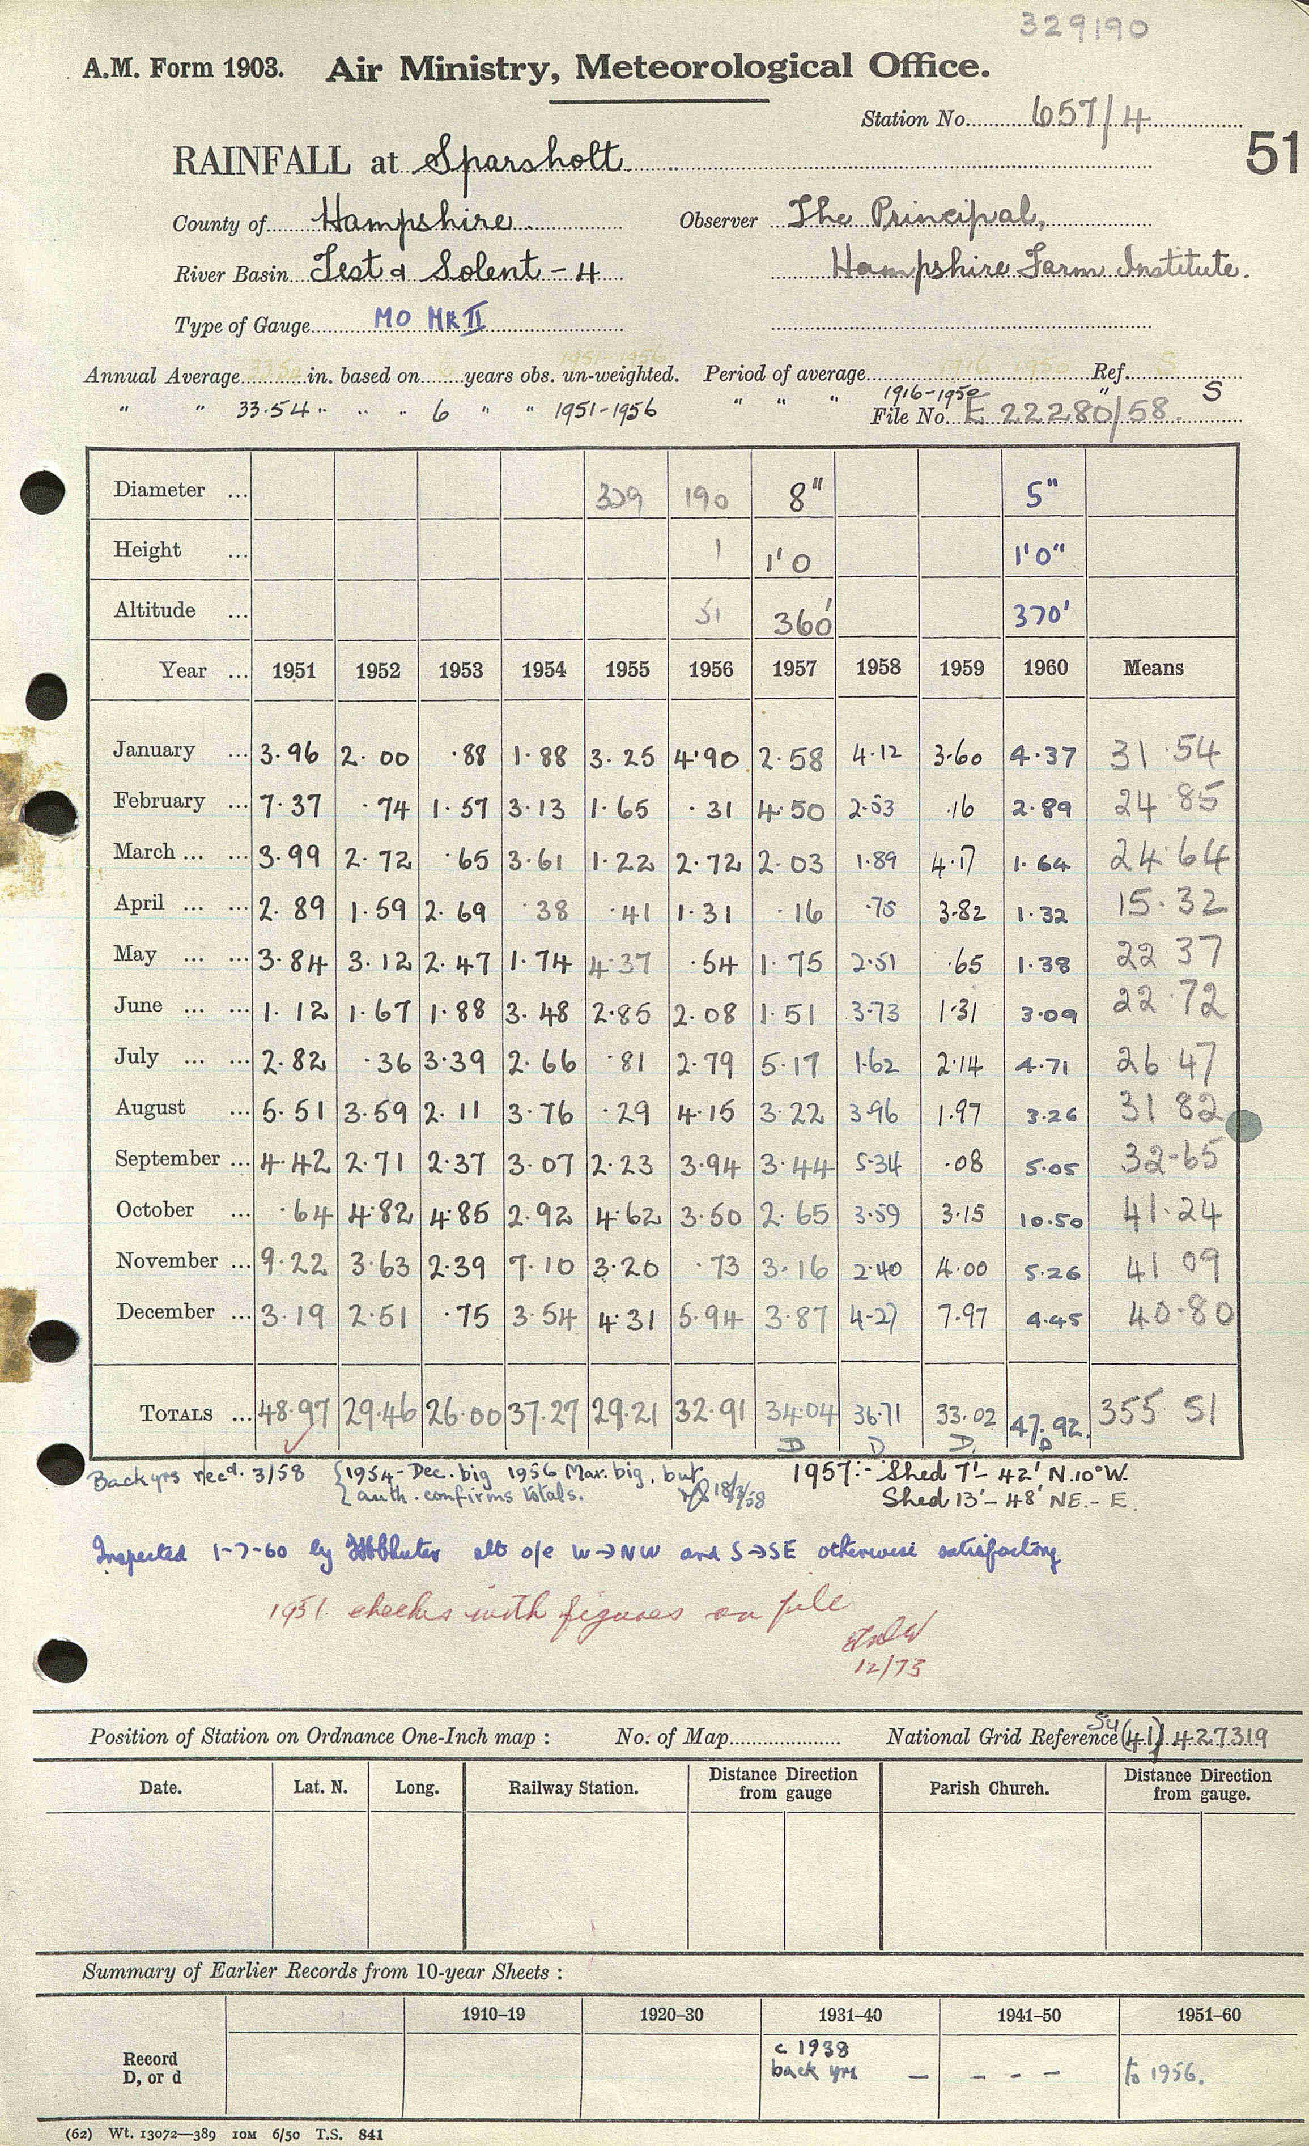 329190
A.M. Form 1903. Air Ministry, Meteorological Office.
Station No. 657/4
51
RAINFALL at Sparsholt
County of Hampshire Observer The Principal,
River Basin Test & Solent - 4 Hampshire Farm Institute.
Type of Gauge MO Mk II
1951-1956
Annual Average 33.54 in. based on 6 years obs. un-weighted. Period of average 1916-1950 Ref. S
" " 33.54 " " " 6 " " 1951-1956 " " " 1916-1950 " S
File No. E 22280/58
Diameter ... 329 190 8" 5"
Height ... 1 1'0 1'0"
Altitude ... 51 360' 370'
Year ... 1951 1952 1953 1954 1955 1956 1957 1958 1959 1960 Means
January ... 3.96 2.00 .88 1.88 3.25 4.90 2.58 4.12 3.60 4.37 31.54
February ... 7.37 .74 1.57 3.13 1.65 .31 4.50 2.53 .16 2.89 24 85
March ... ... 3.99 2.72 .65 3.61 1.22 2.72 2.03 1.89 4.17 1.64 24.64
April ... ... 2.89 1.59 2.69 .38 .41 1.31 .16 .75 3.82 1.32 15.32
May ... ... 3.84 3.12 2.47 1.74 4.37 .54 1.75 2.51 .65 1.38 22 37
June ... ... 1.12 1.67 1.88 3.48 2.85 2.08 1.51 3.73 1.31 3.09 22.72
July ... ... 2.82 .36 3.39 2.66 .81 2.79 5.17 1.62 2.14 4.71 26 47
August ... 5.51 3.59 2.11 3.76 .29 4.15 3.22 3.96 1.97 3.26 31 82
September ... 4.42 2.71 2.37 3.07 2.23 3.94 3.44 5.34 .08 5.05 32.65
October ... .64 4.82 4.85 2.92 4.62 3.50 2.65 3.59 3.15 10.50 41.24
November ... 9.22 3.63 2.39 7.10 3.20 .73 3.16 2.40 4.00 5.26 41 09
December ... 3.19 2.51 .75 3.54 4.31 5.94 3.87 4.27 7.97 4.45 40.80
TOTALS ... 48.97 29.46 26.00 37.27 29.21 32.91 34.04 36.71 33.02 47.92. 355 51
D D D D
Back yrs recd. 3/58 {1954 - Dec. big 1956 Mar. big, but 1957:- Shed 7'- 42' N.10°W.
auth. confirms totals. 18/3/58 Shed 13'- 48' NE.- E.
Inspected 1-7-60 by alt o/e W→NW and S→SE otherwise satisfactory
1951 checks with figures on file
12/73
Position of Station on Ordnance One-Inch map : No. of Map National Grid Reference SU (41) 427319
Date. Lat. N. Long. Railway Station. Distance Direction from gauge Parish Church. Distance Direction from gauge.
Summary of Earlier Records from 10-year Sheets :
1910–19 1920–30 1931–40 1941–50 1951–60
Record c 1938
D, or d back yrs - - - - to 1956.
(62) Wt. 13072—389 10M 6/50 T.S. 841